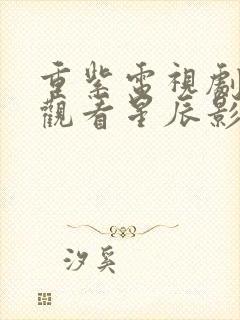 重紫電視劇
觀看星辰影
汐奚